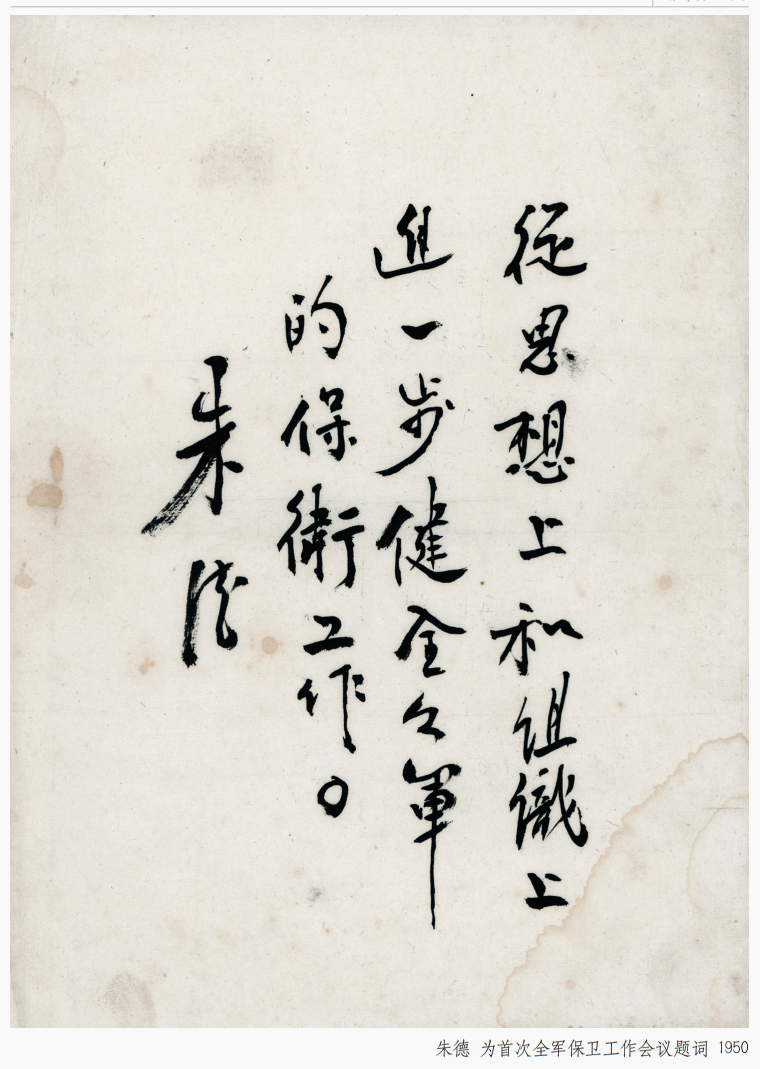 從思想上和組織上
進一步健全々軍
的保衛工作。
朱德
朱德 为首次全军保卫工作会议题词 1950